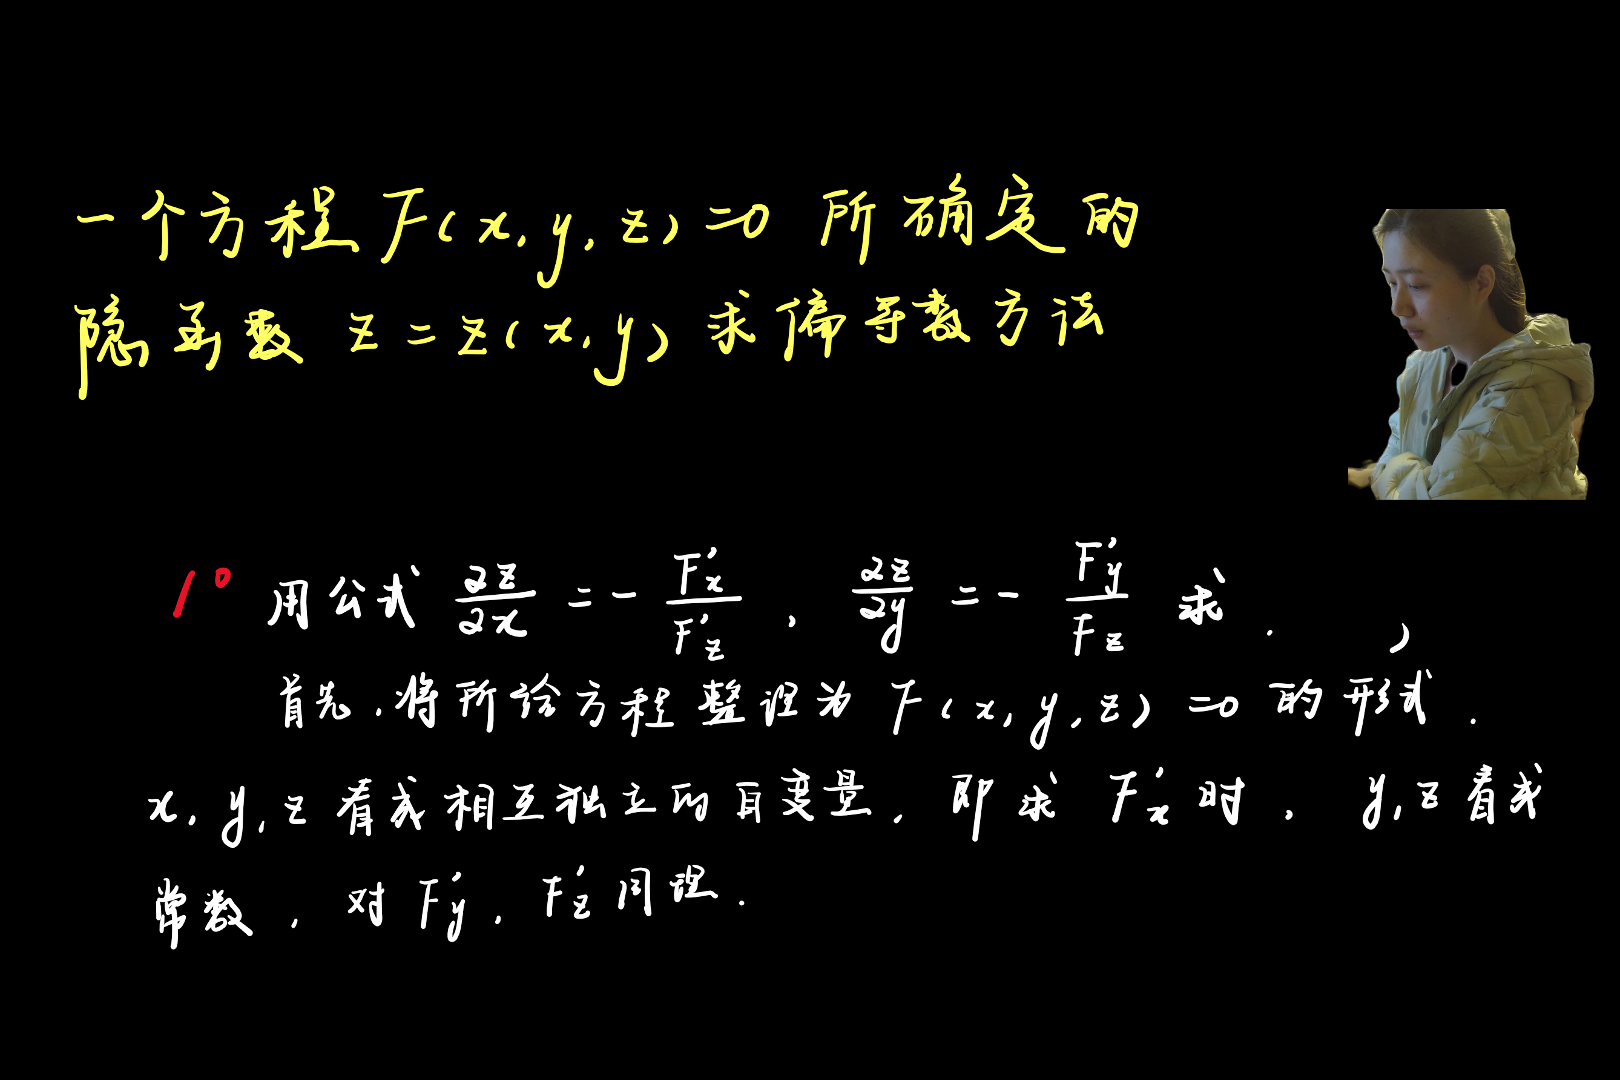 一个方程 F(x,y,z)=0 所确定的
隐函数 z=z(x,y) 求偏导数方法
1° 用公式 ∂z/∂x = - F'x/F'z , ∂z/∂y = - F'y/Fz 求 . ,
首先,将所给方程整理为 F(x,y,z)=0 的形式.
x,y,z看成相互独立的自变量,即求 F'x 时,y,z看成
常数,对 F'y,F'z同理.